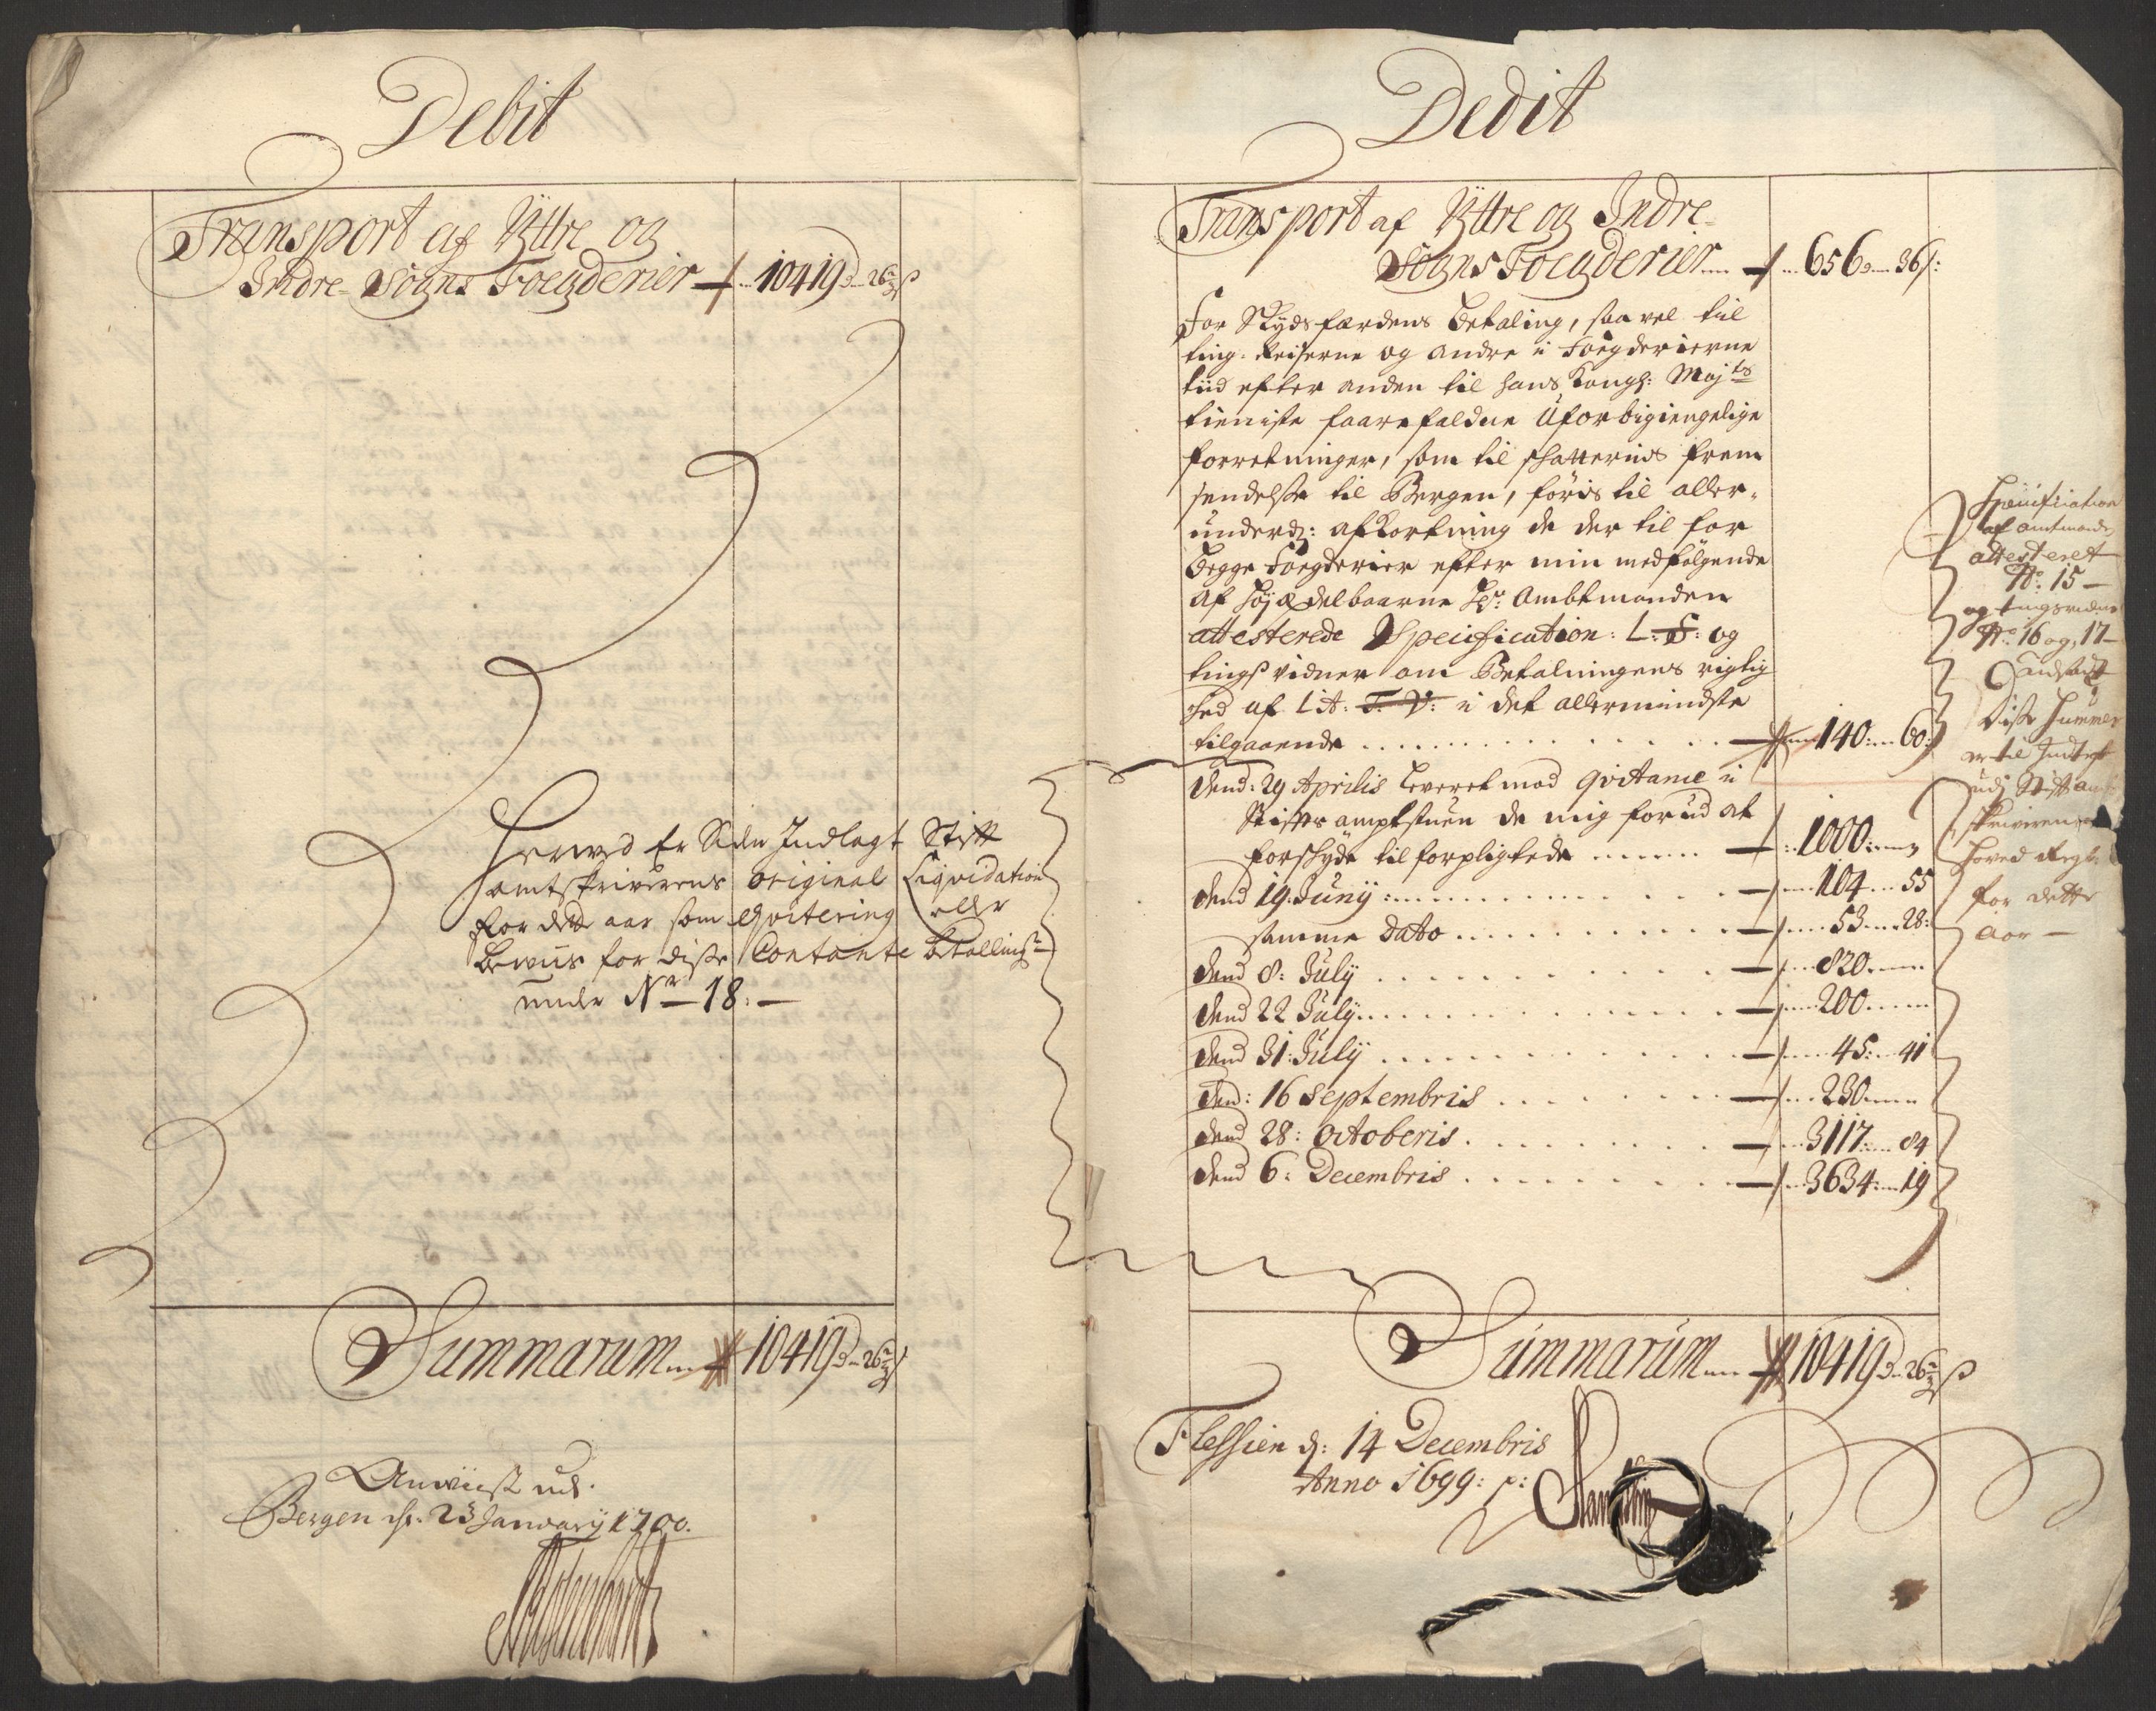 Debit
Transport af Ÿttre og
Indre Sogns Foegderier 10419 26⅔ ß
Herved Er Siden Indlagt Stift
amtskriverens Original Liqvidation
for dette aar som Qvitering eller
Beviis for disse Contante Betalling
under Nr 18:
Summarum 10419 26⅔ ß
Anviist ud.
Bergen d. 23 January 1700.
Dedit
Transport af Ÿttre og Indre
Sogns Foegderier 656 36 ß:
For Skydsfærdens Betaling, saa vel til
ting-Reiserne og andre i Foegderierne
tiid efter anden til hans Kongl: Majts
tieniste faarefaldne Uforbigiengelige
forretninger, som til skatternis frem
sendelse til Bergen, føris til aller-
underd: afKortning de der til for
Begge Foegderier efter min medfølgende
af høyædelbaarne Hr: Ambtmanden
attesterede Specification: L: S: og
tingsvidner om Betalningens rigtig
hed af Lit: T: V: i det allermindste
tilgaaende 140: 60:
Dend: 29 Aprilis Leveret mod qvitance i
Stiftsamptstuen de mig forud at
forskyde til forpligtede 1000:
Dend 19. Junÿ: 104 55
samme Dato 53 28:
Dend 8: Julÿ 820
Dend 22 Julÿ 200
Dend 31: Julÿ 45: 41
Dend: 16 Septembris 230
Dend 28: Octoberis 3117: 84
Dend 6: Decembris 3634: 19
Specification
af amtmand
attesteret
No: 15
og tingsvidne
No: 16 og 17
Disse Summer
er til Indtegt
udj Stiftamt
skriverens
hoved Regb:
for dette
aar
Summarum 10419 26⅔ ß
Flessien d: 14 Decembris
Anno 1699: